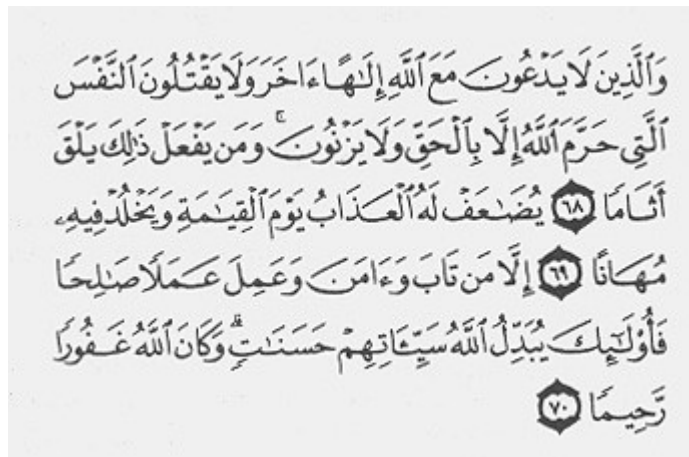 وَٱلَّذِينَ لَا يَدْعُونَ مَعَ ٱللَّهِ إِلَٰهًا ءَاخَرَ وَلَا يَقْتُلُونَ ٱلنَّفْسَ
ٱلَّتِى حَرَّمَ ٱللَّهُ إِلَّا بِٱلْحَقِّ وَلَا يَزْنُونَ ۚ وَمَن يَفْعَلْ ذَٰلِكَ يَلْقَ
أَثَامًا ٦٨ يُضَٰعَفْ لَهُ ٱلْعَذَابُ يَوْمَ ٱلْقِيَٰمَةِ وَيَخْلُدْ فِيهِۦ
مُهَانًا ٦٩ إِلَّا مَن تَابَ وَءَامَنَ وَعَمِلَ عَمَلًا صَٰلِحًا
فَأُو۟لَٰٓئِكَ يُبَدِّلُ ٱللَّهُ سَيِّـَٔاتِهِمْ حَسَنَٰتٍ ۗ وَكَانَ ٱللَّهُ غَفُورًا
رَّحِيمًا ٧٠